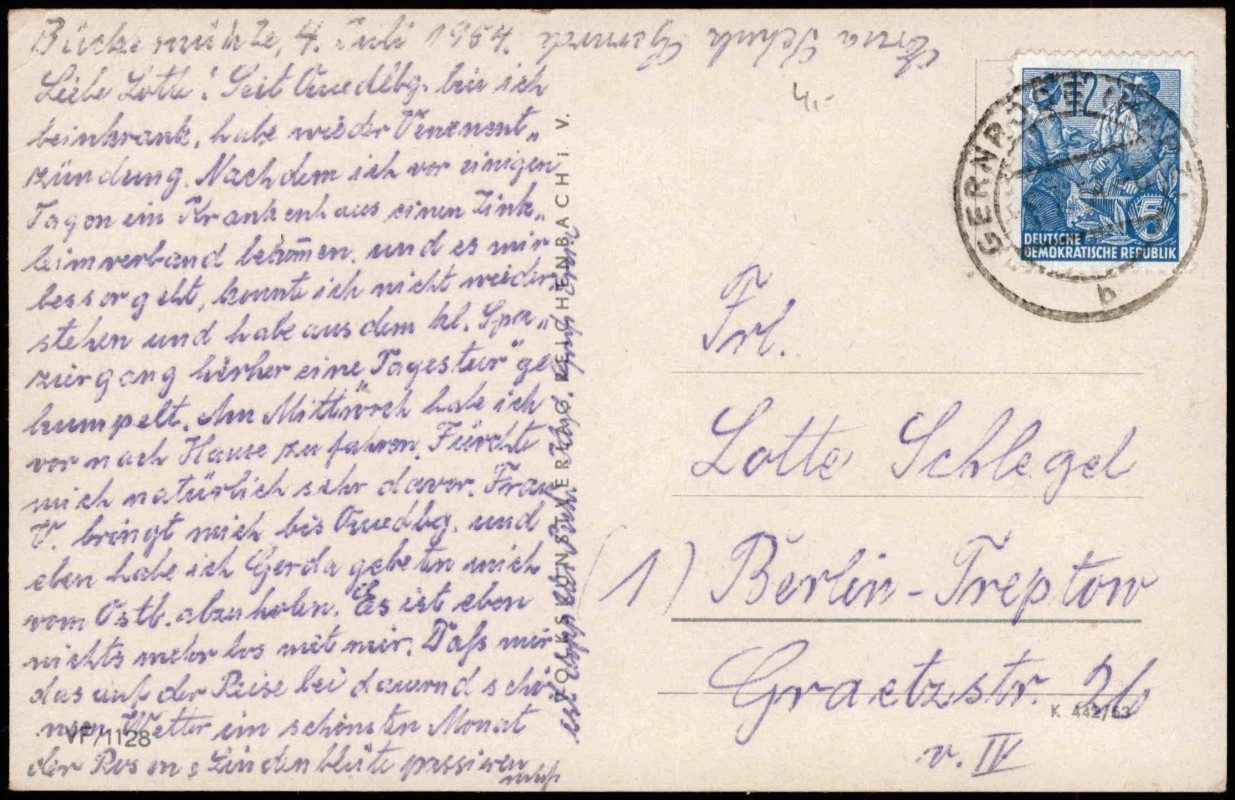 Bückemühle, 4. Juli 1954.
Liebe Lotte! Seit Quedlbg. bin ich
beinkrank, habe wieder Venenent„
zündung. Nachdem ich vor einigen
Tagen ein Krankenhaus einen Zink„
leimverband bekom̄en. und es mir
besser geht, konnte ich nicht wieder
stehen und habe aus dem kl. Spa„
ziergang hierher eine Tagestur" ge
humpelt. Am Mittwoch habe ich
vor nach Hause zu fahren. Fürchte
mich natürlich sehr davor. Frau
V. bringt mich bis Quedbg. und
eben habe ich Gerda gebeten mich
vom Ostb. abzuholen. Es ist eben
nichts mehr los mit mir. Daß mir
das auf der Reise bei dauernd schö„
nem Wetter im schönsten Monat
der Rosen u Lindenblüte passieren
muß
VF/1128
VOLKSKUNSTVERLAG, REICHENBACH I. V.
4,-
GERNRODE (HARZ)
b
12
5
DEUTSCHE
DEMOKRATISCHE REPUBLIK
Frl.
Lotte Schlegel
(1) Berlin-Treptow
Graetzstr. 26
K 442/53
v. IV